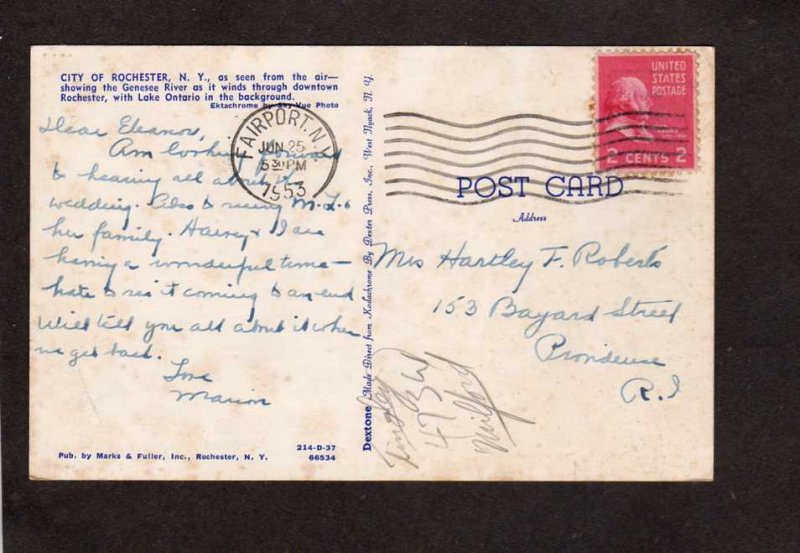 CITY OF ROCHESTER, N. Y., as seen from the air—
showing the Genesee River as it winds through downtown
Rochester, with Lake Ontario in the background.
Ektachrome by Sky-Vue Photo
Dear Eleanor,
Am looking forward
to hearing all about
wedding. Also to seeing M.L. &
her family. Harvey & I are
having a wonderful time —
hate to see it coming to an end
Will tell you all about it when
we get back.
Love
Marion
Pub. by Marks & Fuller, Inc., Rochester, N. Y.
214-D-37
66534
FAIRPORT, N.Y.
JUN 25
5 30 PM
1953
Dextone Made Direct from Kodachrome By Dexter Press, Inc., West Nyack, N. Y.
UNITED
STATES
POSTAGE
2 CENTS 2
POST CARD
Address
Mrs Hartley F. Roberts
153 Bayard Street
Providence
R.I
Milford